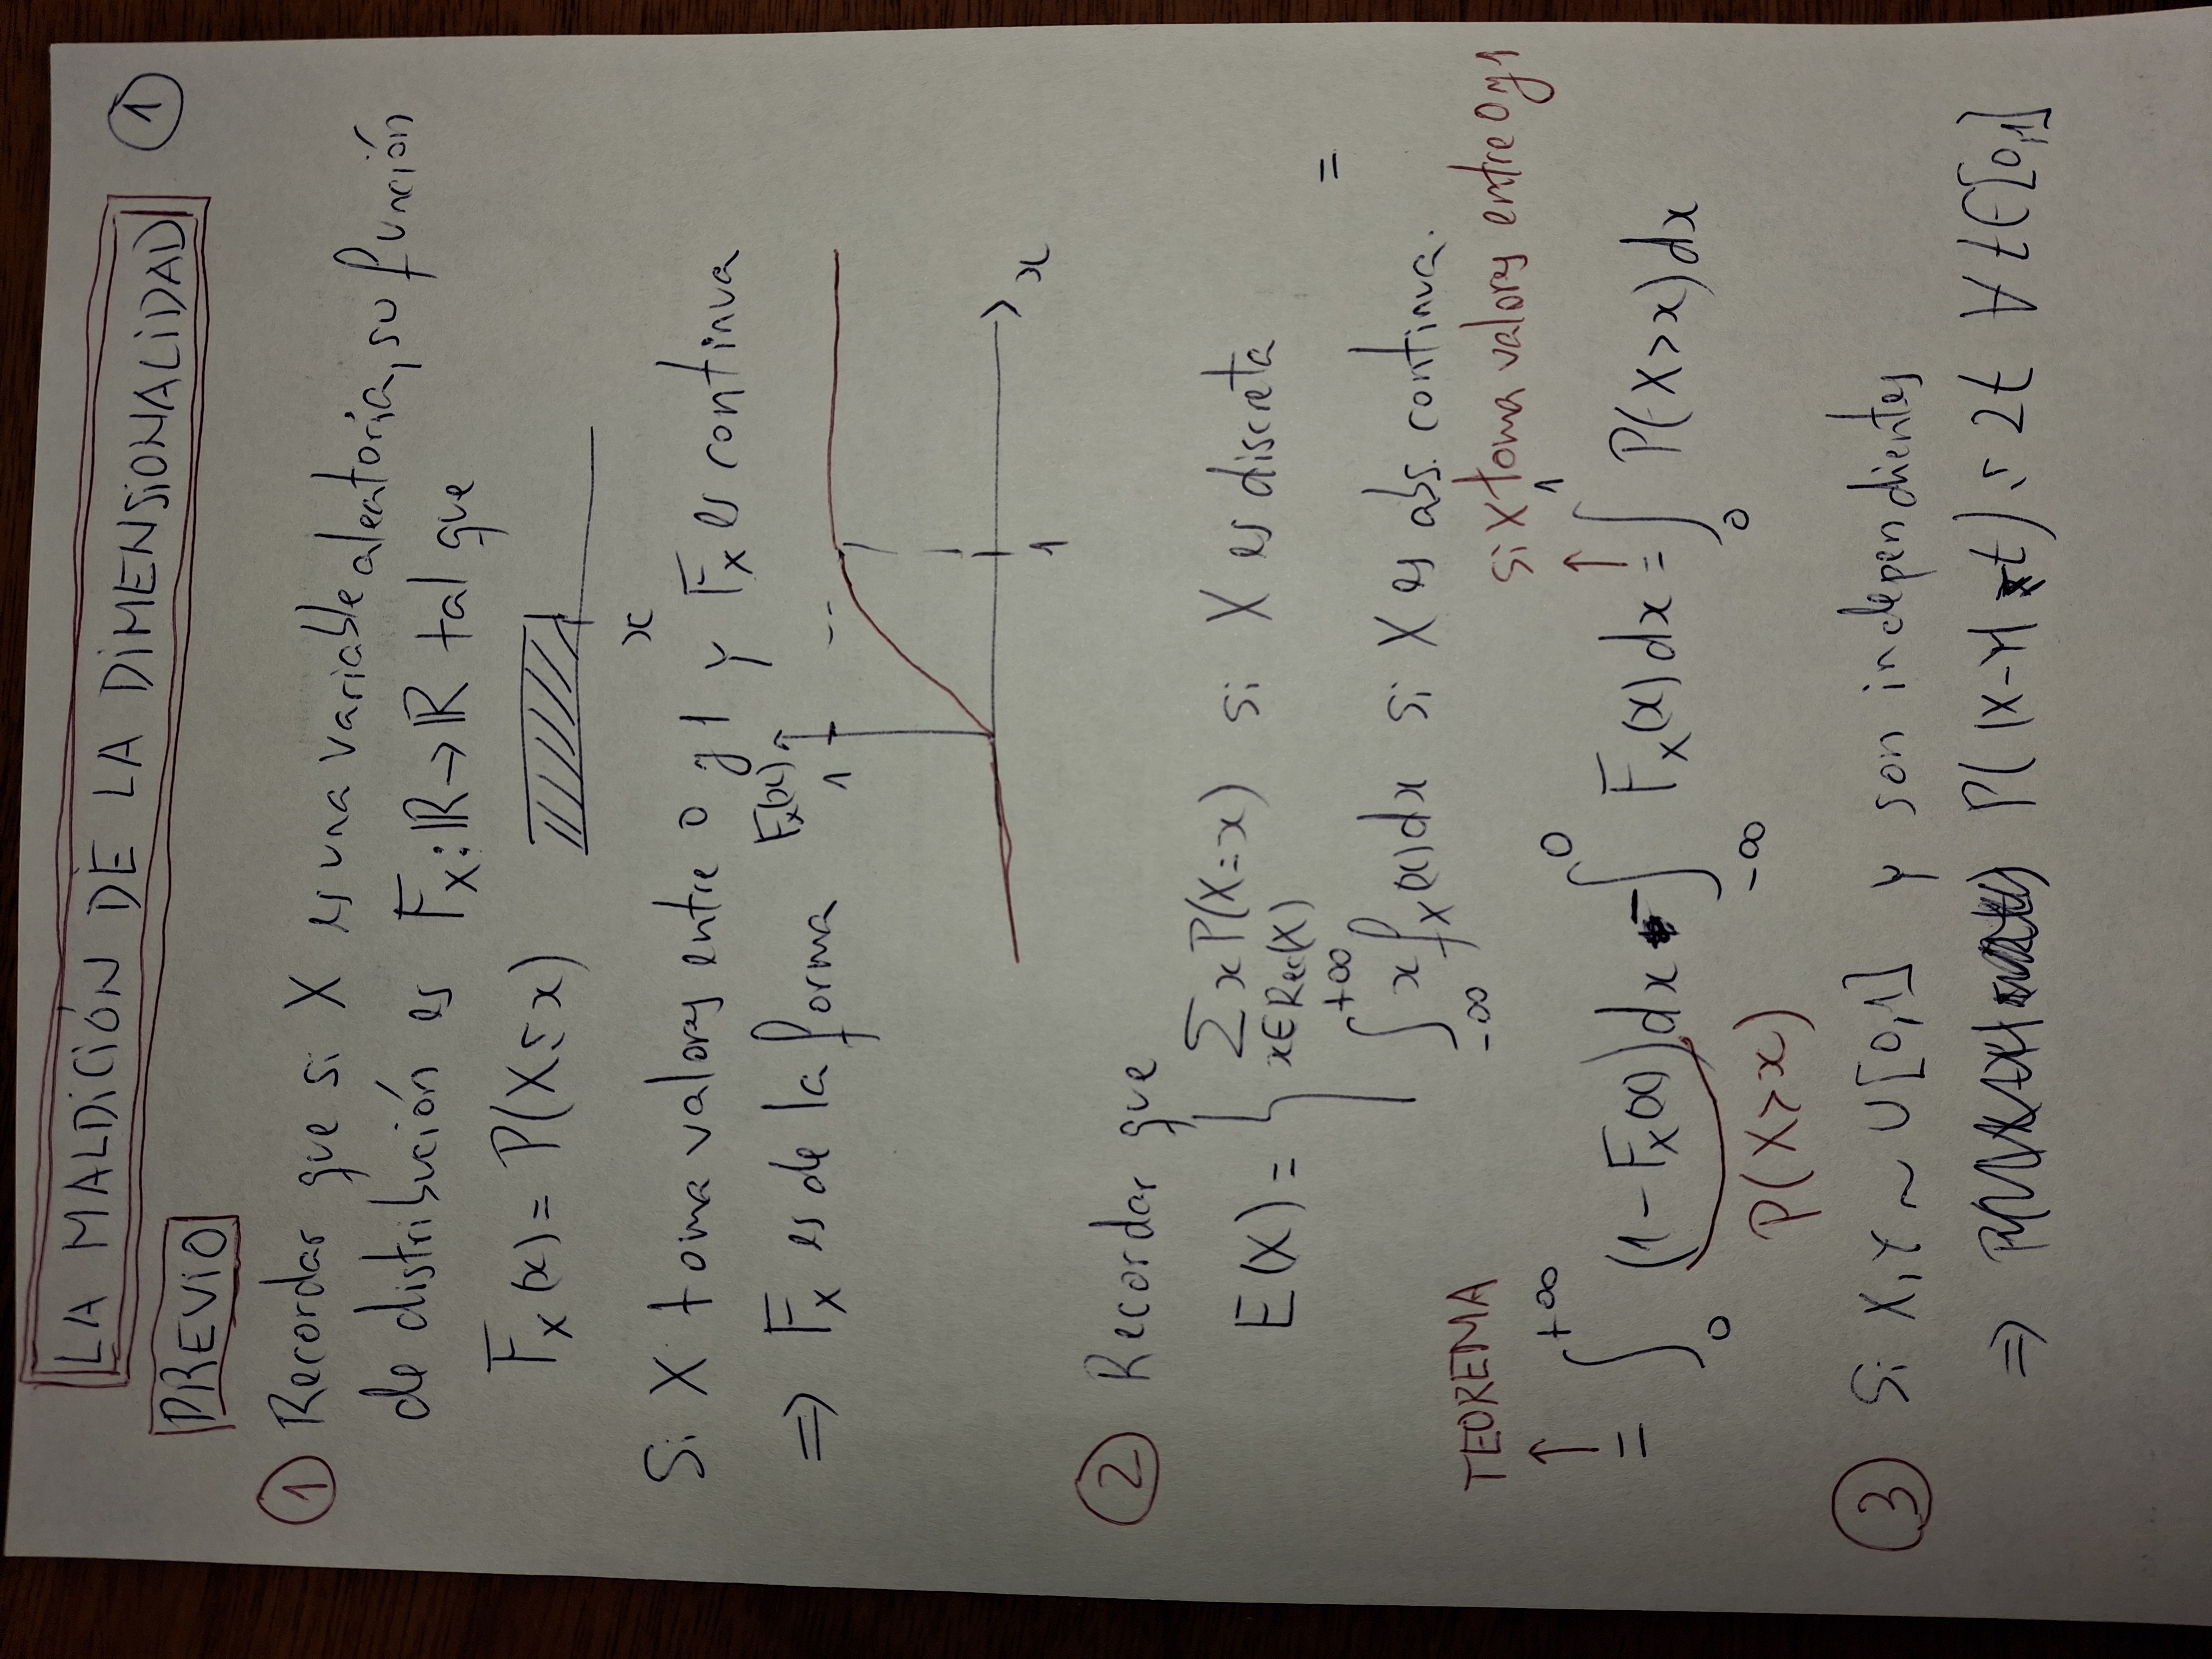 LA MALDICIÓN DE LA DIMENSIONALIDAD ①
PREVIO
① Recordar que si X es una variable aleatoria, su función
de distribución es F_X: ℝ → ℝ tal que
F_X(x) = P(X ≤ x)
x
Si X toma valores entre 0 y 1 y F_X es continua
⇒ F_X es de la forma
F_X(x)
1
1
x
② Recordar que
E(X) = { ∑_{x∈Rec(X)} x P(X=x) si X es discreta
∫_{-∞}^{+∞} x f_X(x) dx si X es abs. continua. =
TEOREMA ↑
si X toma valores entre 0 y 1 ↑
= ∫_0^{+∞} (1 - F_X(x)) dx - ∫_{-∞}^0 F_X(x) dx = ∫_0^1 P(X>x) dx
P(X>x)
③ Si X, Y ~ U[0,1] y son independientes
⇒ P( |X-Y| t) ≤ 2t ∀ t ∈ [0,1]